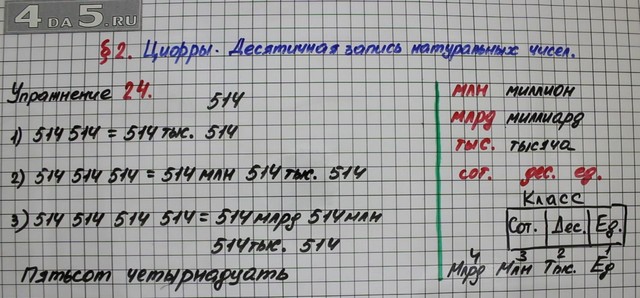 4 DA 5.RU
§2. Цифры. Десятичная запись натуральных чисел.
Упражнение 24.
514
1) 514 514 = 514 тыс. 514
2) 514 514 514 = 514 млн 514 тыс. 514
3) 514 514 514 514 = 514 млрд 514 млн
514 тыс. 514
Пятьсот четырнадцать
млн миллион
млрд миллиард
тыс. тысяча
сот. дес. ед.
Класс
Сот. Дес. Ед.
4 3 2 1
Млрд Млн Тыс. Ед